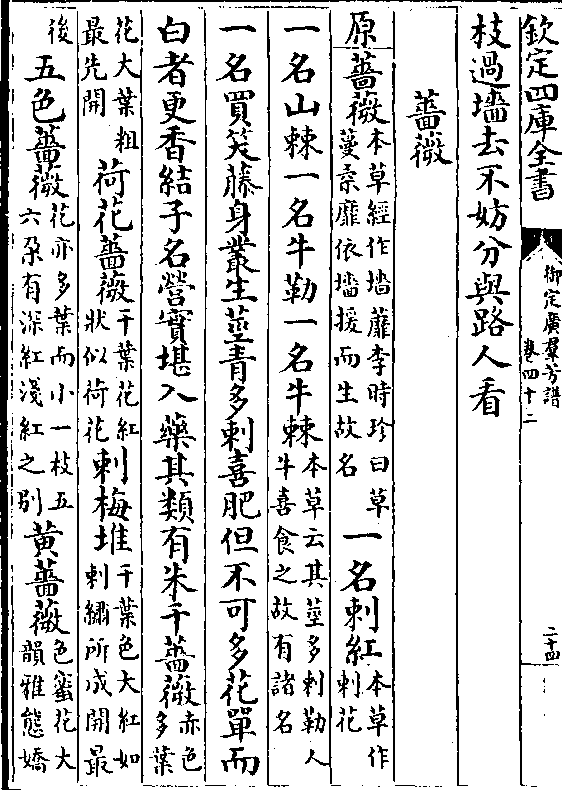 欽定四庫全書
御定廣羣芳譜
卷四十二
二十四
枝過墻去不妨分與路人看
薔薇
原薔薇本草經作墻蘼李時珍曰草蔓柔靡依墻援而生故名一名刺紅本草作刺花
一名山棘一名牛勒一名牛棘本草云其莖多刺勒人牛喜食之故有諸名
一名買笑藤身叢生莖青多刺喜肥但不可多花單而
白者更香結子名營實堪入藥其類有朱千薔薇赤色多葉
花大葉粗最先開荷花薔薇千葉花紅狀似荷花刺梅堆千葉色大紅如刺繡所成開最
後五色薔薇花亦多葉而小一枝五六朶有深紅淺紅之別黄薔薇色蜜花大韻雅態嬌